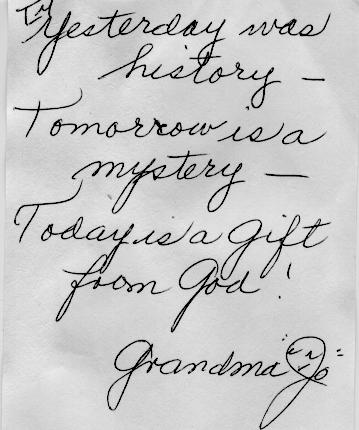 Yesterday was
history –
Tomorrow is a
mystery –
Today is a gift
from God!
Grandma Jo